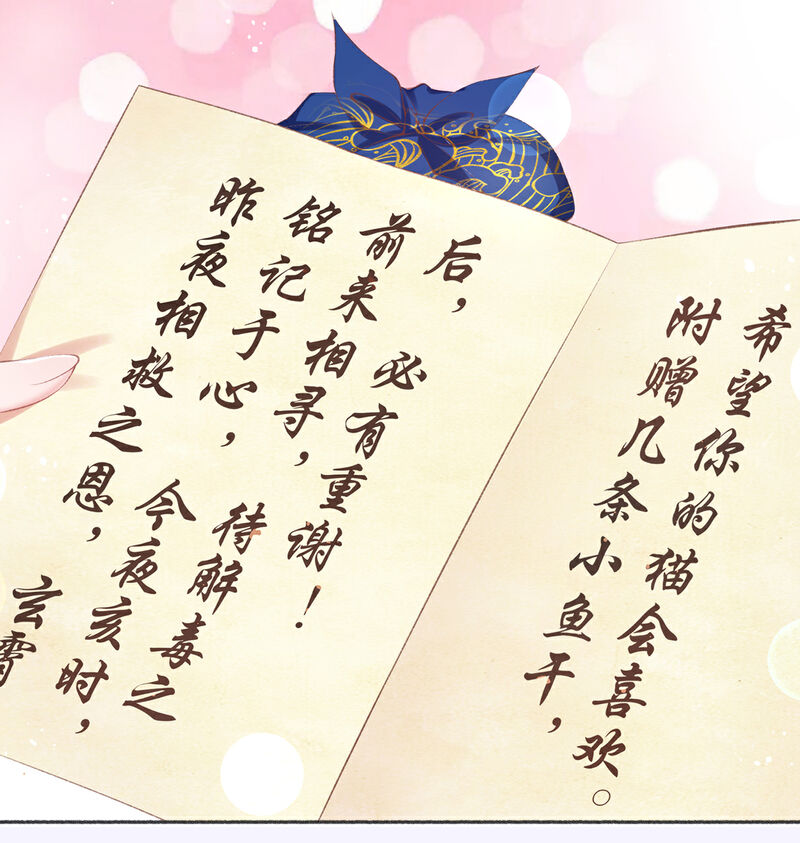 昨夜相救之恩，玄霄
铭记于心，今夜亥时，
前来相寻，待解毒之
后，必有重谢！
附赠几条小鱼干，
希望你的猫会喜欢。